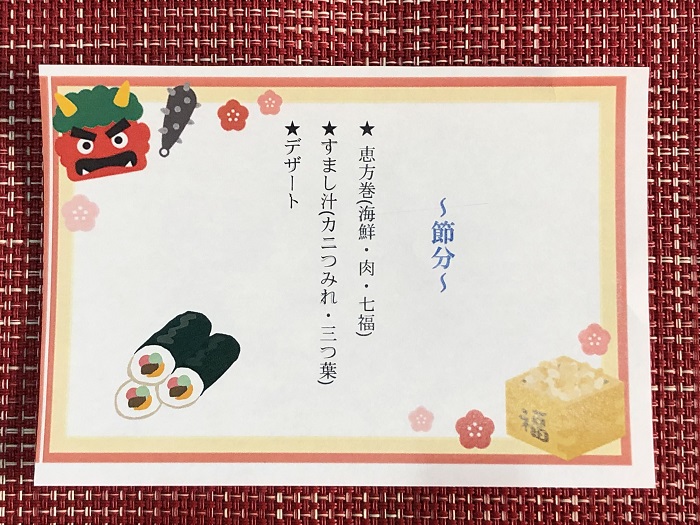 ～節分～
★ 恵方巻(海鮮・肉・七福)
★すまし汁(カニつみれ・三つ葉)
★デザート
福